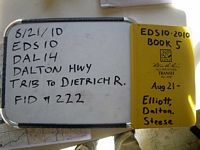 8/21/10
EDS10
DAL14
DALTON HWY
TRIB TO DIETRICH R.
FID # 222
EDS10-2010
BOOK 5
TRANSIT
Aug 21-
Elliott,
Dalton,
Steese